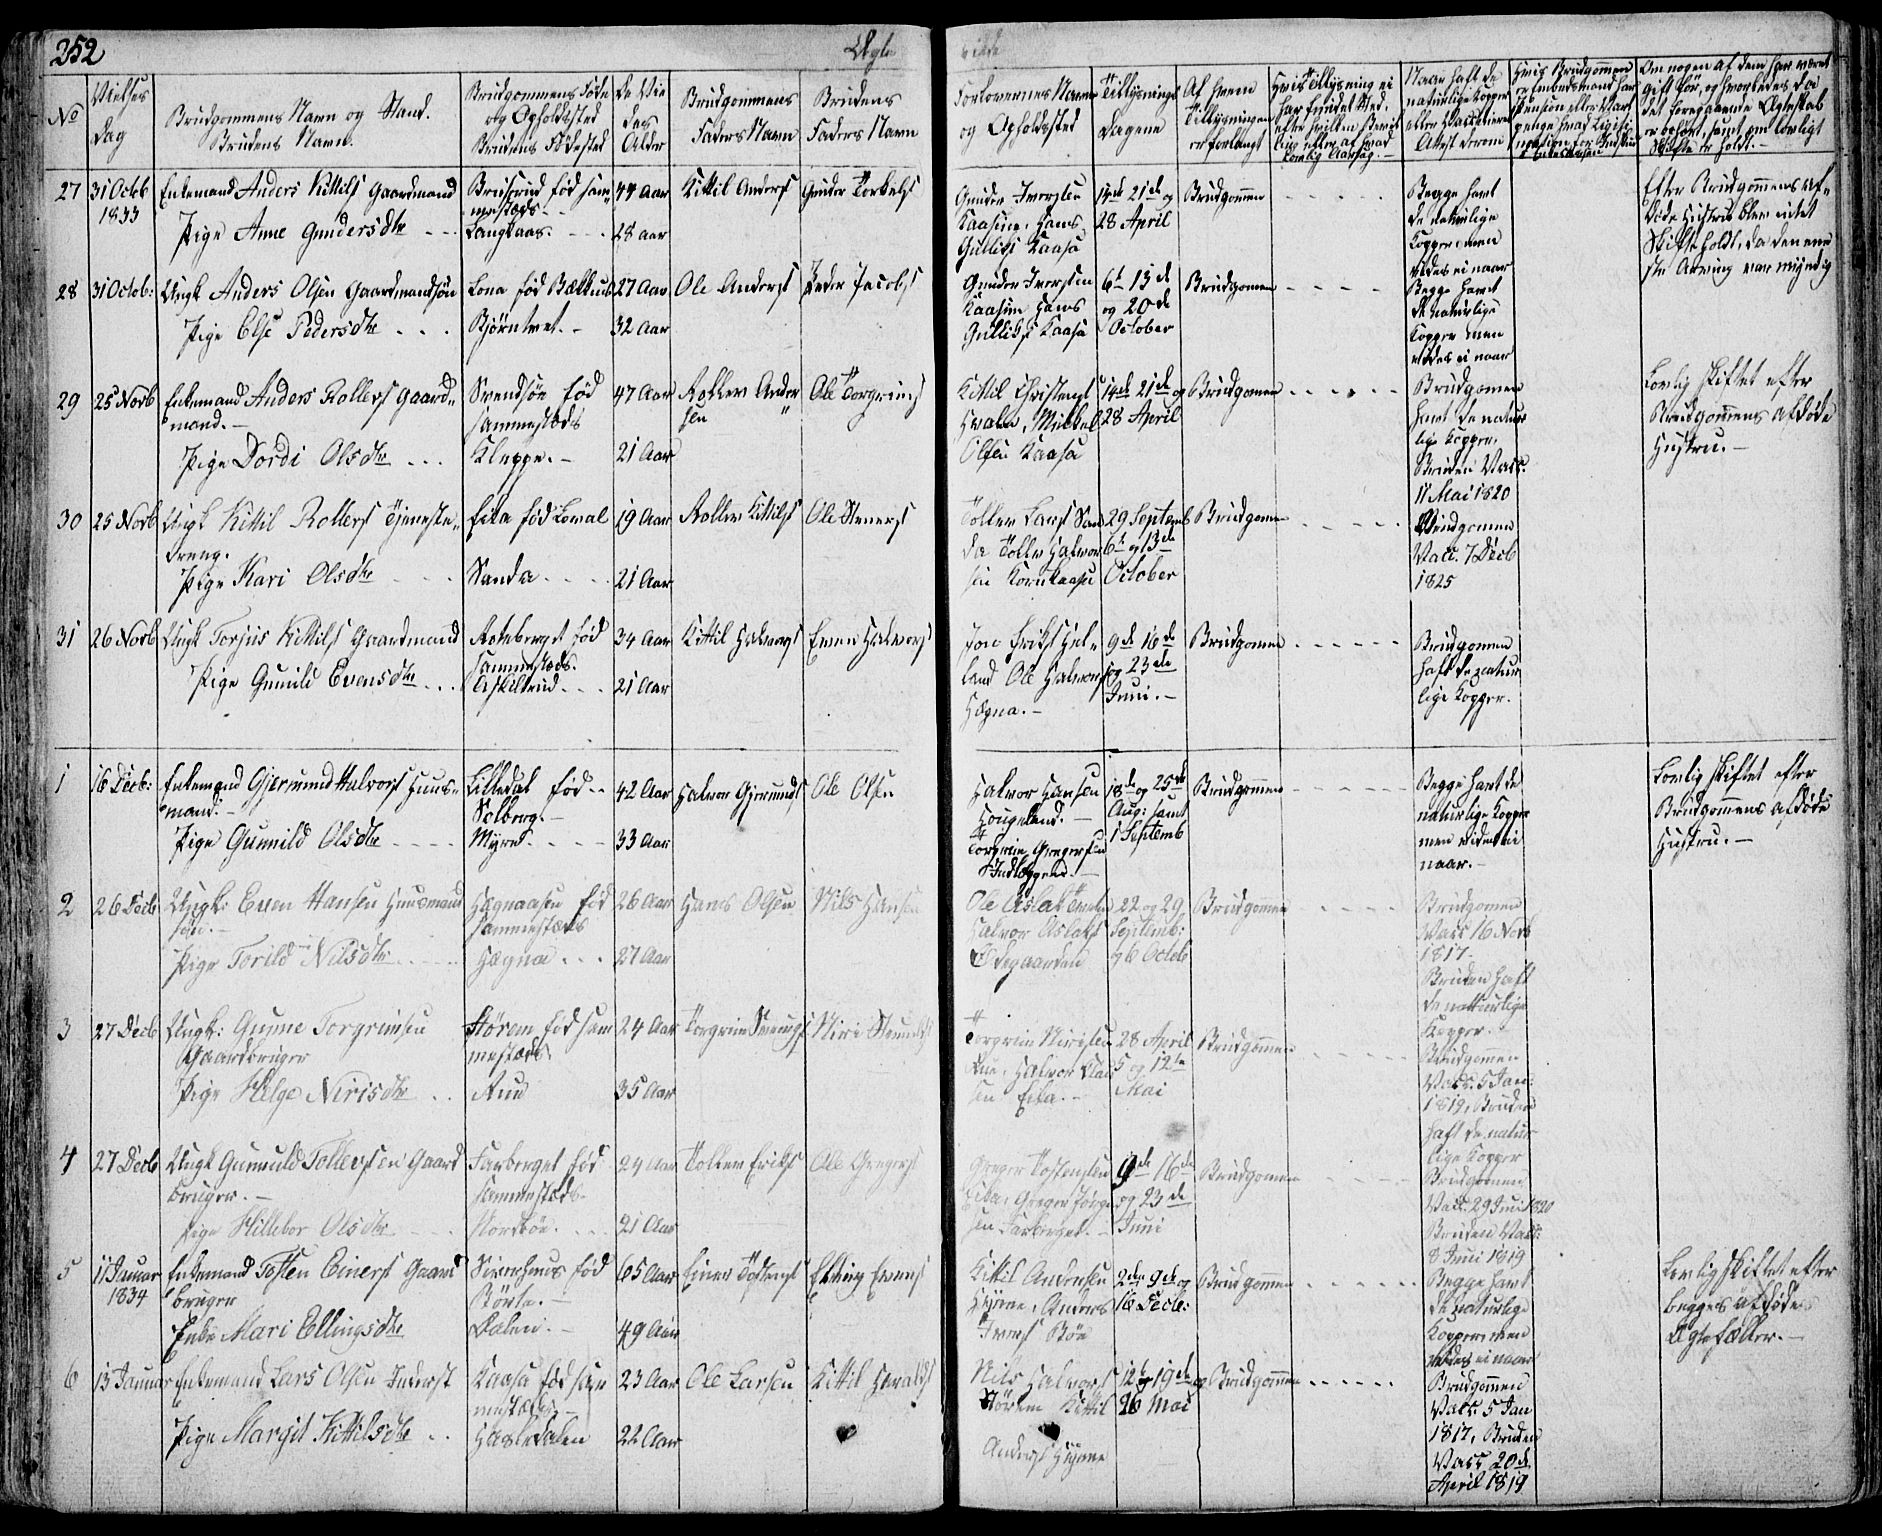 252
Ægte
viede
No
Vielses Dag
Brudgommens Navn og Stand.
Brudens Navn.
Brudgommens Føde
og Opholdssted
Brudens Fødested
De Vie
des
Alder
Brudgommens
Faders Navn
Brudens
Faders Navn
Forlovernes Navne
og Opholdssted
Tillysnings
Dagene
Af hvem
Tillysningen
er forlangt
Hvis Tillysning ei
har fundet Sted,
Naar haft de
naturlige Kopper
eller Vaccineret
Attest derom
Hvis Brudgommen
er Embedsmand har
Om nogen af dem har været
gift før, og hvorledes da
det foregaaende Ægteskab
er ophørt, samt om lovligt
Skifte er holdt.
27 31 Octob 1833
Enkemand Anders Kittils Gaardmand
Pige Anne Gundersdtr
fød sam
mestæds
Langkaas
44 Aar
28 aar
Kittil Anders
Gunder Torkels
Gunder Iversen
Kaasine, Hans
Gulliks Kaasa
14de 21de og
28 April
Brudgommen
Begge havt
de naturlige
Kopper, men
vides ei naar
Efter Brudgommens af-
døde Hustru blev intet
Skifte holdt, da den ene
ste Arving var myndig
28 31 Octob:
Ungk Anders Olsen Gaardmandsøn
Pige Else Pedersdtr
Lona fød Bækhus
Bjørntvet
27 Aar
32 Aar
Ole Anders
Peder Jacobs
Gunder Iversen
Kaasine Hans
Gulliks Kaasa
6te 13de
og 20de
October
Brudgomen
Begge havt
de naturlige
Kopper men
vides ei naar
29 25 Novb
Enkemand Anders Rollefs Gaard-
mand.
Pige Dordi Olsdtr
Svendsøe fød
sammestæds
Kleppe.
47 Aar
21 Aar
Rollev Ander
sen
Ole Torgrims
Kittil Christens
Hvala, Mikkel
Olsen Kaasa
14de 21de og
28 April
Brudgomen
Brudgomen
havt de natur
lige Kopper,
Bruden Vacc.
11 Mai 1820
Lovlig skiftet efter
Brudgommens afdøde
Hustru.
30 25 Novb
Ungk Kittil Rollefs Tjeneste-
dreng.
Pige Kari Olsdtr
Eika fød Loval
Sanda
19 Aar
21 Aar
Rollev Kittils
Ole Steners
Tollev Lars San
da Tollev Halvor
sen Kornkaasa
29 Septemb
6te og 13de
October
Brudgomen
Brudgomen
Vacc. 7 Decb
1825
31 26 Novb
Ungk Torjus Kittils Gaardmand
Pige Gunild Evensdtr
fød
sammestæds.
Askiltrud
34 Aar
21 Aar
Kittil Halvors
Even Halvors
Jon Eriks Hel-
land Ole Halvors
Hægna.
9de 16de
og 23de
Juni.
Brudgomen
Brudgomen
haft de natur
lige Kopper.
1 16 Decb:
Enkemand Gjermund Halvors Huus-
mand.
Pige Gunnild Olsdtr
Lilledal fød
Solberg.
Myren
42 Aar
33 Aar
Halvor Gjermunds
Ole Olsen
Halvor Hansen
Haugeland.
Torgrim Gregersen
18de og 25de
Aug: samt
1 Septemb
Brudgommen
Begge havt de
naturlige Kopper
men vides ei
naar.
Lovlig skiftet efter
Brudgommens afdøde
Hustru.
2 26 Decb
Ungk: Even Hansen Huusmand
søn.
Pige Torild Nilsdtr
Hægnaasen fød
sammestæds
Hægna
26 Aar
27 Aar
Hans Olsen
Nils Hansen
Ole Aslak
Halvor Aslaks
Ødegaarden
22 og 29
Septemb:
og 6 Octob
Brudgommen
Brudgomen
Vacc 16 Novb
1817.
Bruden haft
de naturlige
Kopper.
3 27 Decb
Ungk: Gunne Torgrimsen
Gaardbruger
Pige Helge Nirisdtr
Størem fød sam
mestæds
Rue
24 Aar
35 Aar
Torgrim Svenungs
Niri
Torgrim Nirisen
Rue, Halvor
sen Eika.
28 April
5 og 12te
Mai
Brudgommen
Brudgomen
Vacc. 5 Jan:
1819, Bruden
haft de natur
lige Kopper
4 27 Decb
Ungk Gunnuld Tollevsen Gaard
bruger.
Pige Hillebor Olsdtr
Farberget fød
sammestæds.
Nordbøe.
24 Aar
21 Aar
Tollev Eriks
Ole Gregers
Greger Tostensen
Eika, Greger Jørgen
sen Farberget.
9de 16de
og 23de
Juni
Brudgommen
Brudgommen
Vacc. 29 Juni 1820
Bruden Vacc:
8 Juni 1819
5 11 Januar 1834
Enkemand Tosten Einers Gaard
bruger
Enke Mari Ellingsdtr
fød
Dalen.
65 Aar
49 Aar
Einer Tostens
Elling Evens
Kittil Andersen
Hjene, Anders
Ivers Bøe
2den 9de og
16 Decb:
Brudgommen
Begge havt
de naturlige
Kopper men
vides ei naar
Lovlig skiftet efter
begges afdøde
Ægtefæller.
6 13 Januar
Enkemand Lars Olsen Inderst
Pige Margit Kittilsdtr
Kaasa fød sam
mestæds.
Hasledalen
23 Aar
22 Aar
Ole Larsen
Kittil Haralds
Nils Halvors
Størem Kittil
Anders Hjene
12te og 19de og
26 Mai
Brudgommen
Brudgommen
Vacc. 5 Jan
1817, Bruden
Vacc 20de
April 1819